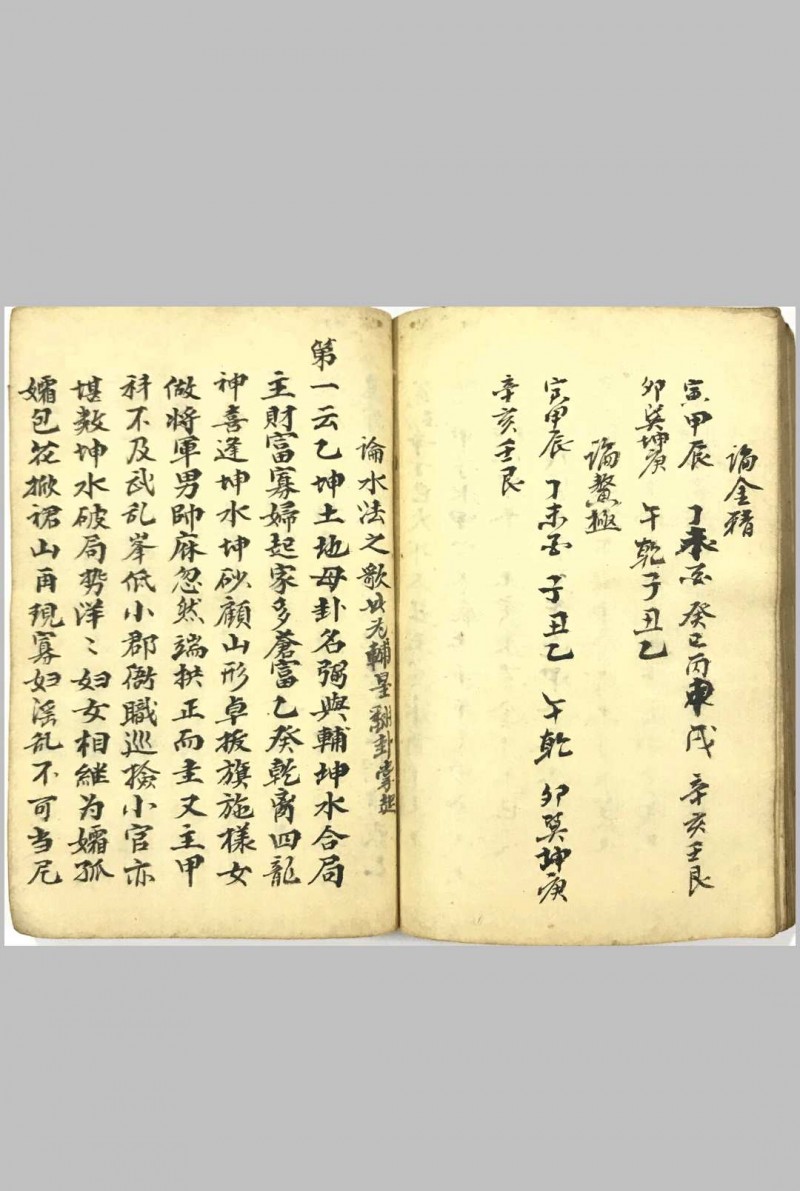 論金
寅甲辰 丁未 癸巳丙 戌 辛亥壬艮
卯巽坤庚 午乾子丑乙
論鰲極
寅甲辰 丁未 子丑乙 午乾 卯巽坤庚
辛亥壬艮
論水法之歌 此九輔星 卦掌起
第一云乙坤土地母卦名弼與輔坤水合局
主財富寡婦起家多蒼富乙癸乾离四龍
神喜逢坤水坤砂顧山形卓拔旗施樣女
做将軍男帥麻忽然端拱正而主又主甲
科不及武乱峯低小郡衙職巡撿小官亦
堪数坤水破局势洋〻妇女相継为孀孤
孀包花掀裙山再現寡妇淫乱不可当尼